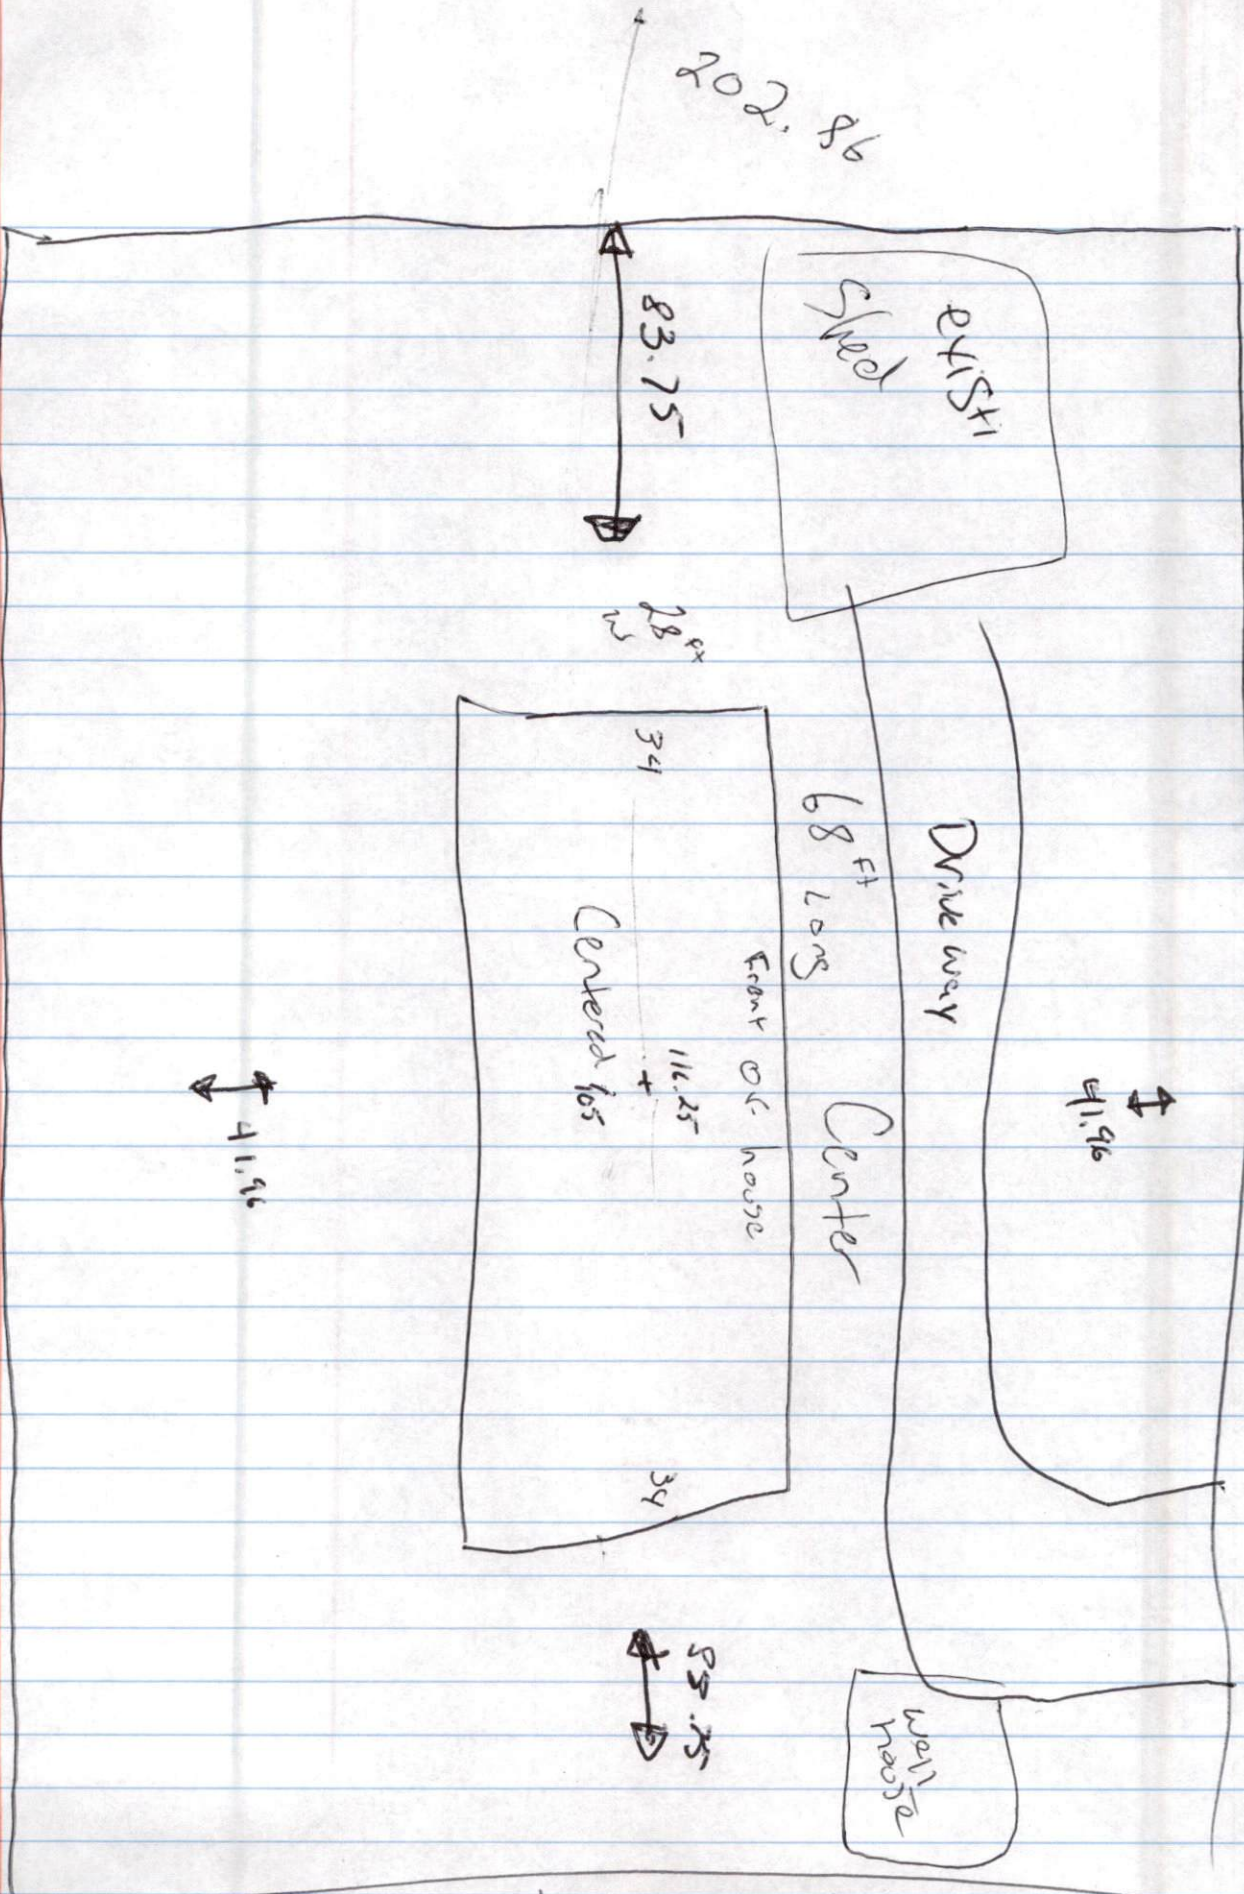 202.86
existi
Shed
83.75
28 ft
W
Driveway
68 Ft Long
Center
41.96
34
Front of house
116.25
+
Centered
34
41.96
well
house